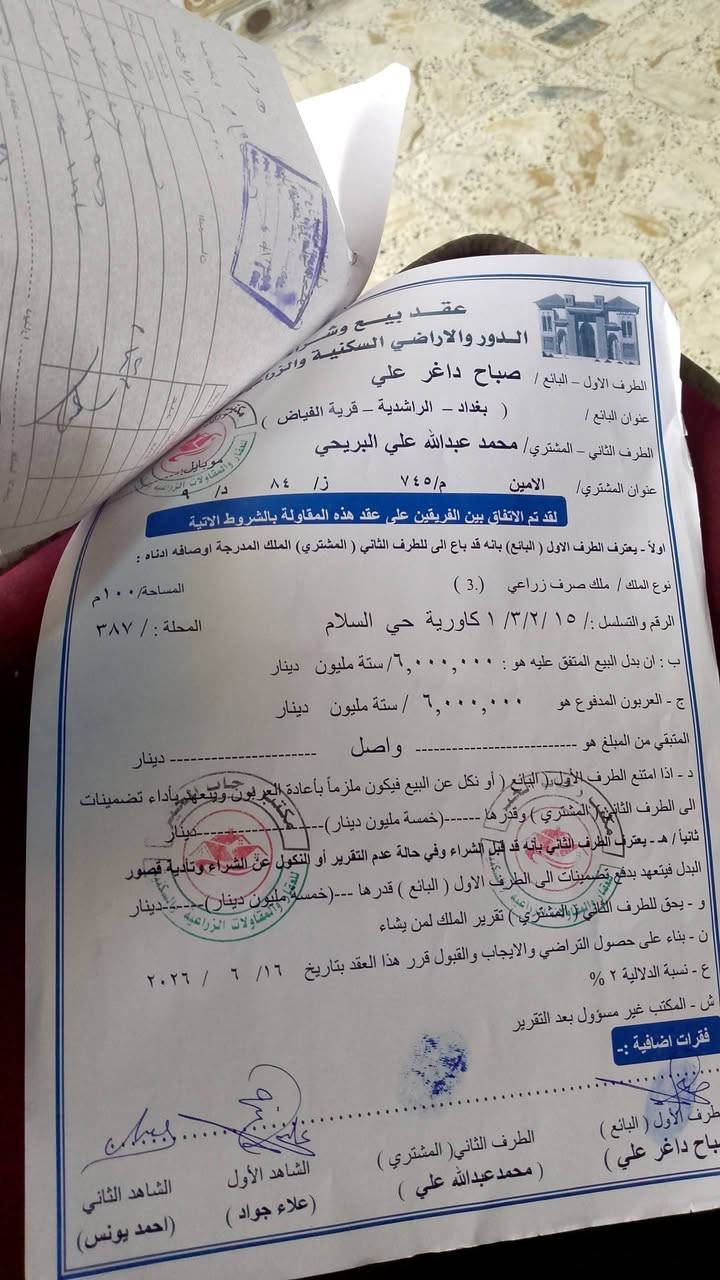 عقد بيع وشراء
الدور والاراضي السكنية والزراعية
الطرف الاول – البائع / صباح داغر علي
عنوان البائع / ( بغداد – الراشدية – قرية الفياض )
الطرف الثاني – المشتري/ محمد عبدالله علي البريحي
موبايل
عنوان المشتري/ الامين م/٧٤٥ ز/ ٨٤ د/ ٩
لقد تم الاتفاق بين الفريقين على عقد هذه المقاولة بالشروط الاتية
اولاً - يعترف الطرف الاول ( البائع) بانه قد باع الى للطرف الثاني ( المشتري) الملك المدرجة اوصافه ادناه :
نوع الملك / ملك صرف زراعي ( .3) المساحة/ ١٠٠م
الرقم والتسلسل :/ ١٥ /٣/٢/ ١ كاورية حي السلام المحلة : / ٣٨٧
ب : ان بدل البيع المتفق عليه هو : ٦,٠٠٠,٠٠٠/ ستة مليون دينار
ج - العربون المدفوع هو ٦,٠٠٠,٠٠٠ / ستة مليون دينار
المتبقي من المبلغ هو ---------------------- واصل -------------------- دينار
د - اذا امتنع الطرف الأول ( البائع ) أو نكل عن البيع فيكون ملزماً بأعادة العربون ويتعهد بأداء تضمينات
الى الطرف الثاني ( المشتري ) وقدرها ------(خمسة مليون دينار)------------------دينار
ثانياً / هـ - يعترف الطرف الثاني بأنه قد قبل الشراء وفي حالة عدم التقرير أو النكول عن الشراء وتأدية قصور
البدل فيتعهد بدفع تضمينات الى الطرف الاول ( البائع ) قدرها ---(خمسة مليون دينار)------دينار
و - يحق للطرف الثاني ( المشتري ) تقرير الملك لمن يشاء
ن - بناء على حصول التراضي والايجاب والقبول قرر هذا العقد بتاريخ ١٦/ ٦ / ٢٠٢٦
ع - نسبة الدلالية ٢ %
ش - المكتب غير مسؤول بعد التقرير
فقرات اضافية :-
طرف الأول ( البائع ) الطرف الثاني( المشتري ) الشاهد الأول الشاهد الثاني
صباح داغر علي ) ( محمدعبدالله علي ) (علاء جواد ) (احمد يونس)
للعقار والمقاولات الزراعية